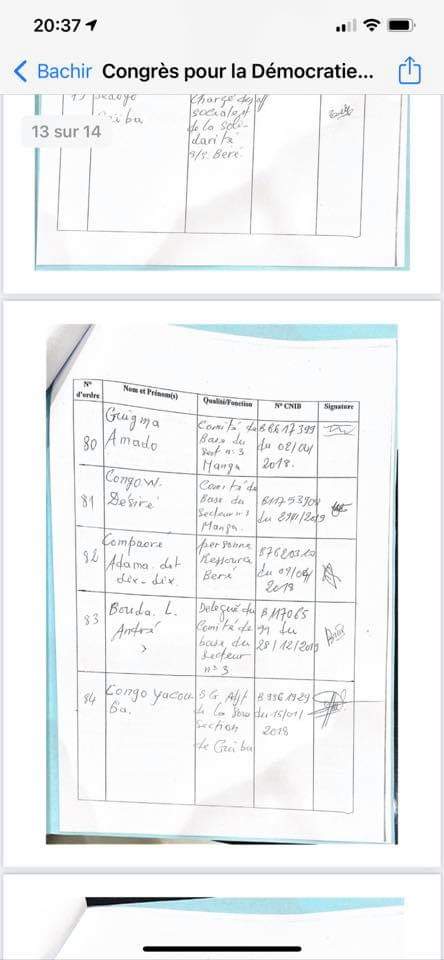 20:37
Bachir Congrès pour la Démocratie...
13 sur 14
Chargé des aff
sociales et
de la soli-
darité
s/s. Beré
N° d'ordre Nom et Prénom(s) Qualité/Fonction N° CNIB Signature
80 Guigma Amado
Comité de
Base du
sect n°3
Manga
du 02/04
2018.
81 Congo W. Désiré
Comité de
Base du
Secteur n°3
Manga.
82 Compaoré Adama dit dix-dix.
personne
Ressource
Beré
2018
83 Bouda. L. André
Délégué du
Comité de
base du
Secteur
n°3
B117065
99 du
28/12/2019
84 Congo Yacou Ba.
SG Adjt
de la sous
section
de Guiba
B9961929
du 15/01/
2018